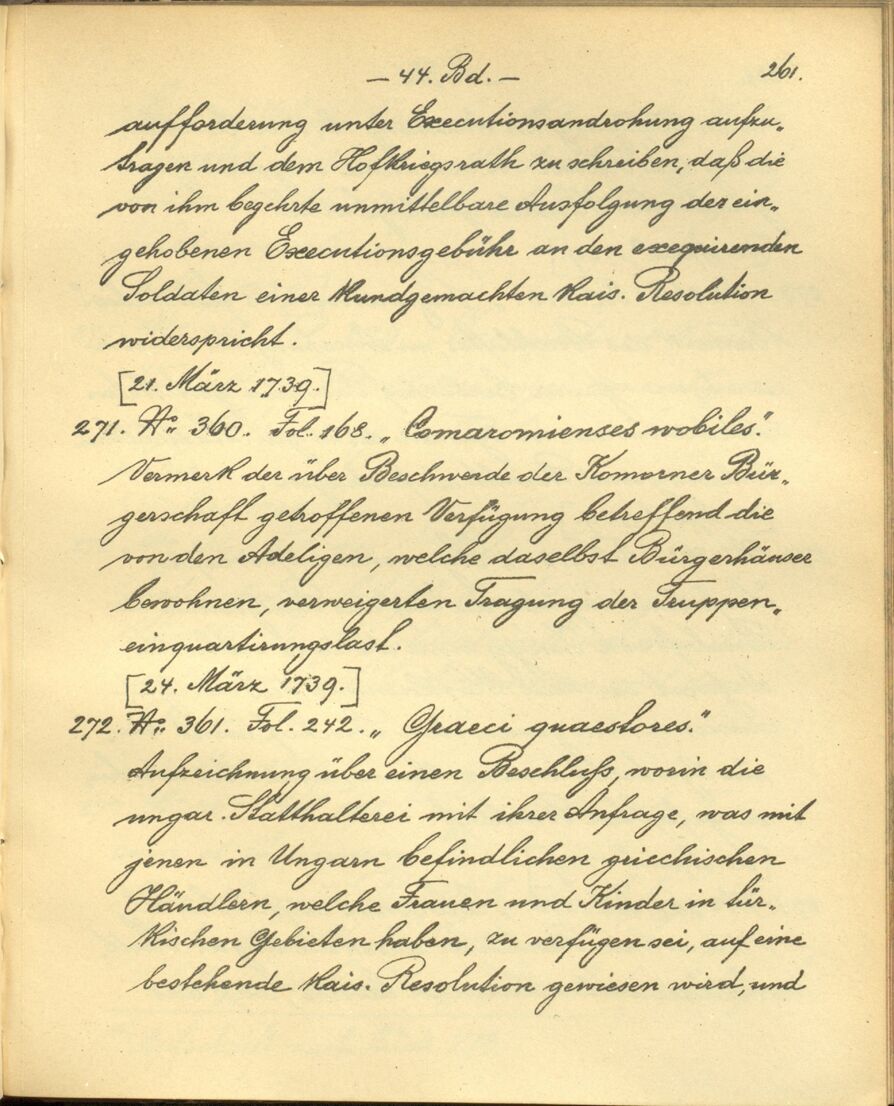 — 44. Bd. — 261.
aufforderung unter Executionsandrohung aufzu„
tragen und dem Hofkriegsrath zu schreiben, daß die
von ihm begehrte unmittelbare Ausfolgung der ein„
gehobenen Executionsgebühr an den exequirenden
Soldaten einer kundgemachten kais. Resolution
widerspricht.
[21. März 1739.]
271. No. 360. Fol. 168. „Comaromienses nobiles."
Vermerk der über Beschwerde der Komorner Bür„
gerschaft getroffenen Verfügung betreffend die
von den Adeligen, welche daselbst Bürgerhäuser
bewohnen, verweigerten Tragung der Truppen„
einquartirungslast.
[24. März 1739.]
272. No. 361. Fol. 242. „Graeci quaestores."
Aufzeichnung über einen Beschluß, worin die
ungar. Statthalterei mit ihrer Anfrage, was mit
jenen in Ungarn befindlichen griechischen
Händlern, welche Frauen und Kinder in tür„
kischen Gebieten haben, zu verfügen sei, auf eine
bestehende kais. Resolution gewiesen wird, und